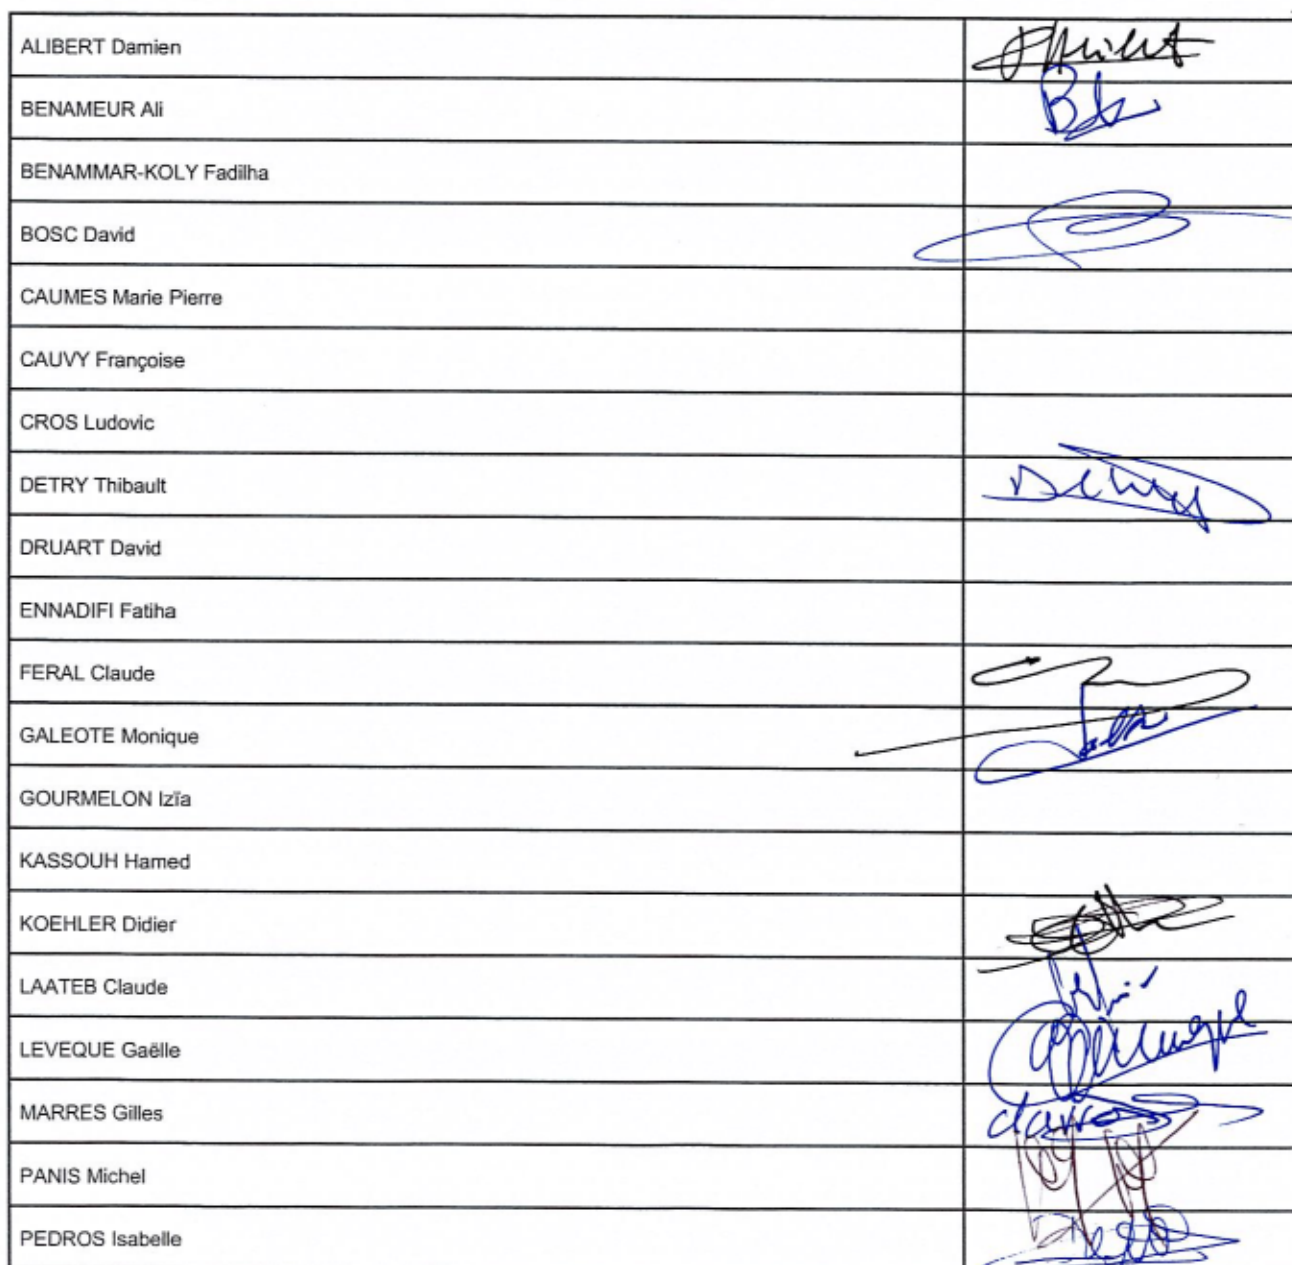 ALIBERT Damien
BENAMEUR Ali
BENAMMAR-KOLY Fadilha
BOSC David
CAUMES Marie Pierre
CAUVY Françoise
CROS Ludovic
DETRY Thibault
DRUART David
ENNADIFI Fatiha
FERAL Claude
GALEOTE Monique
GOURMELON Izïa
KASSOUH Hamed
KOEHLER Didier
LAATEB Claude
LEVEQUE Gaëlle
MARRES Gilles
PANIS Michel
PEDROS Isabelle